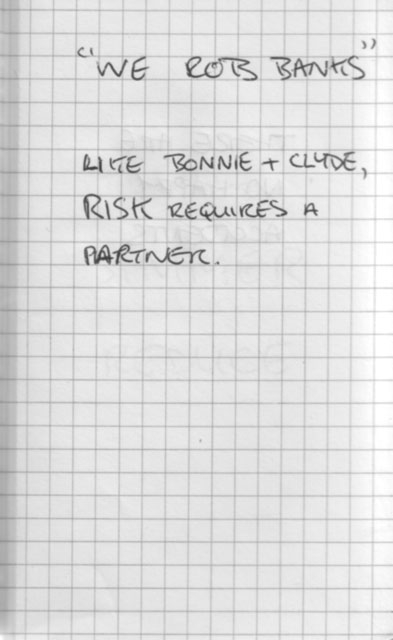 "WE ROB BANKS"
LIKE BONNIE + CLYDE,
RISK REQUIRES A
PARTNER.